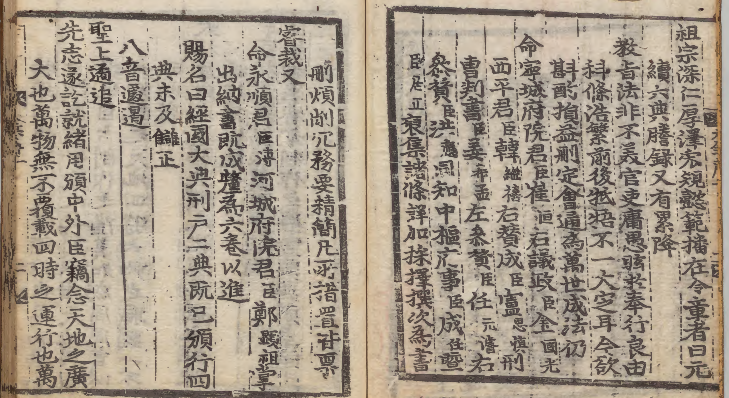 祖宗深仁厚澤宏規懿範播在令章者曰元
續六典謄錄又有累降
敎旨法非不美官吏庸愚眩於奉行良由
科條浩繁前後牴牾不一大定耳今欲
斟酌損益刪定會通爲萬世成法仍
命寧城府院君臣崔恒右議政臣金國光
西平君臣韓繼禧右贊成臣盧思愼刑
曹判書臣姜希孟左參贊臣任元濬右
參贊臣洪應同知中樞府事臣成任曁
臣居正裒集諸條詳加採擇撰次爲書
刪煩削冗務要精簡凡所措置皆稟
睿裁又
命永順君臣溥河城府院君臣鄭顯祖掌
出納書旣成釐爲六卷以進
賜名曰經國大典刑戶二典旣已頒行四
典未及讎正
八音遽遏
聖上遹追
先志遂訖就緖用頒中外臣竊念天地之廣
大也萬物無不覆載四時之運行也萬